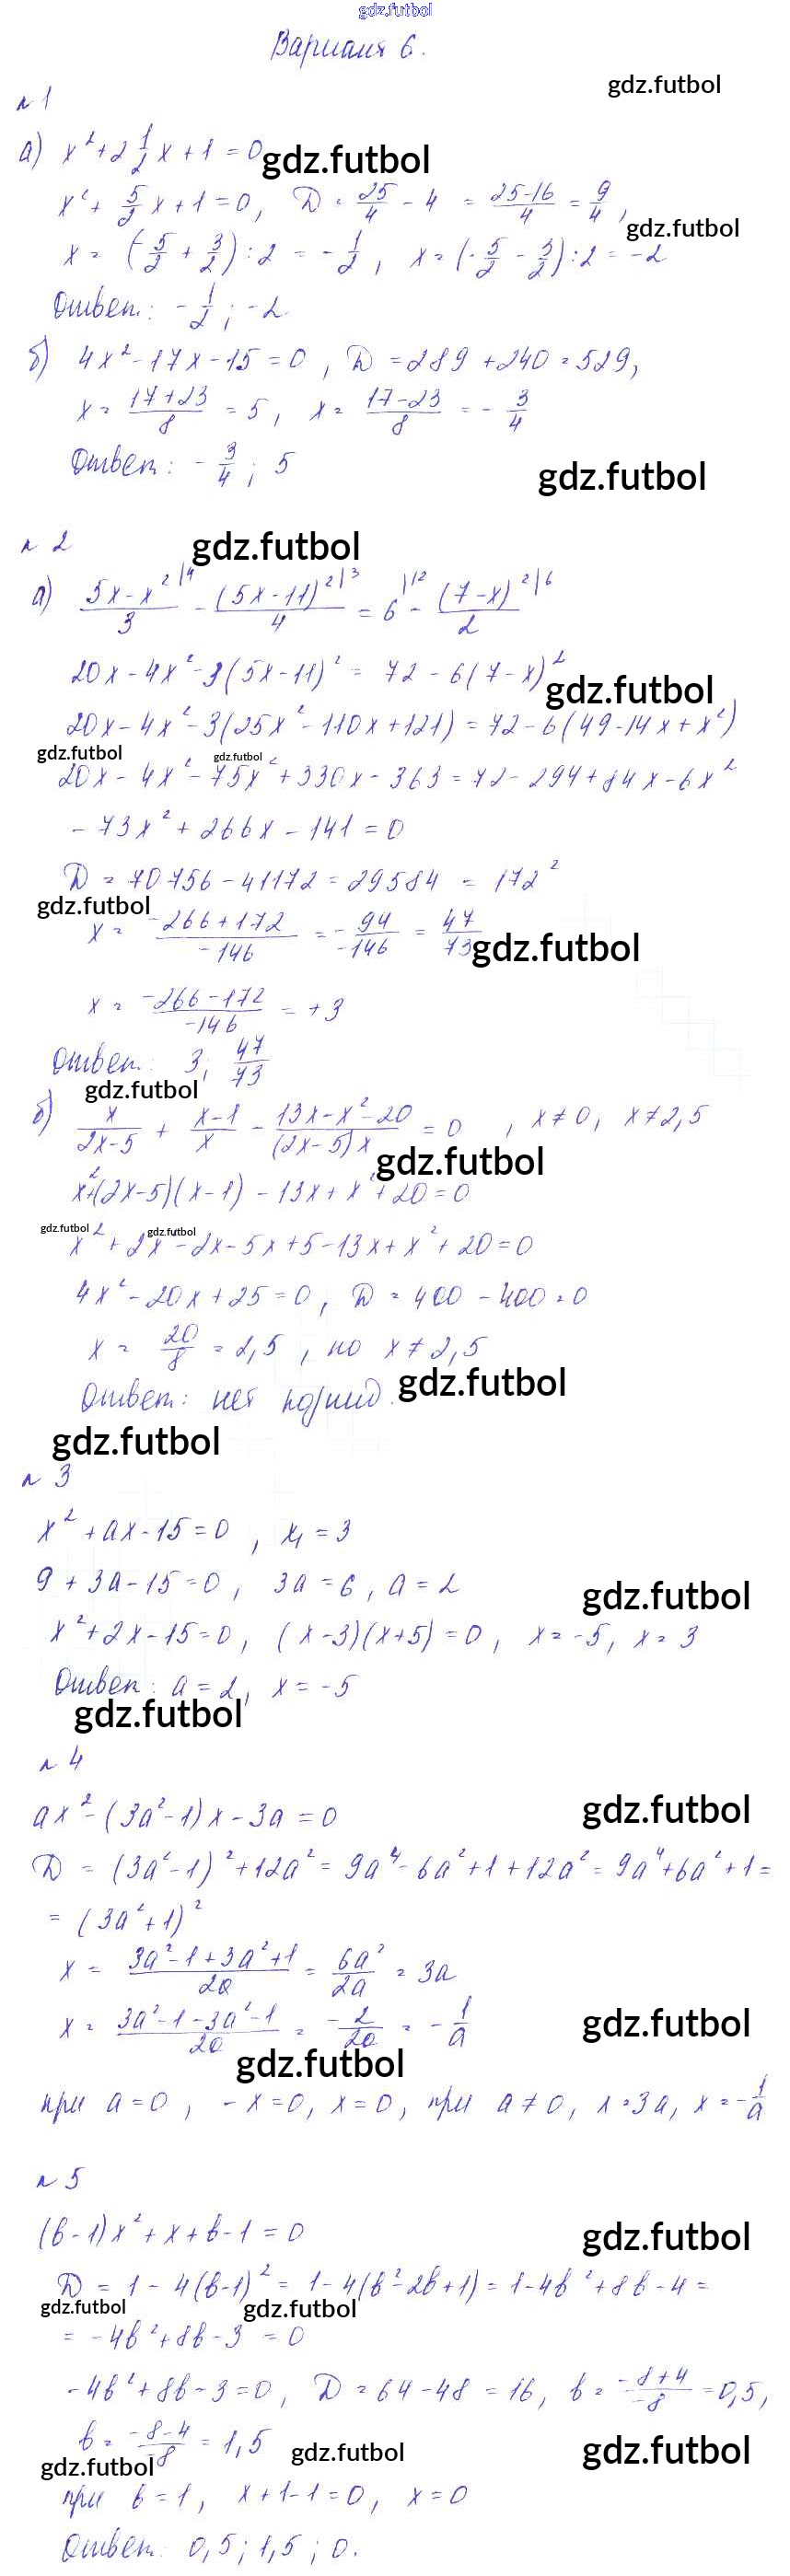 gdz.futbol
Вариант 6.
gdz.futbol
№1
а) x² + 2 1/2 x + 1 = 0 gdz.futbol
x² + 5/2 x + 1 = 0, D = 25/4 - 4 = (25-16)/4 = 9/4,
gdz.futbol
x = (-5/2 + 3/2) : 2 = -1/2, x = (-5/2 - 3/2) : 2 = -2
Ответ: -1/2; -2
б) 4x² - 17x - 15 = 0, D = 289 + 240 = 529,
x = (17+23)/8 = 5, x = (17-23)/8 = -3/4
Ответ: -3/4; 5
gdz.futbol
№ 2 gdz.futbol
а) (5x - x²)/3 |4 - (5x-11)²/4 |3 = 6 |12 - (7-x)²/2 |6
20x - 4x² - 3(5x-11)² = 72 - 6(7-x)²
gdz.futbol
20x - 4x² - 3(25x² - 110x + 121) = 72 - 6(49 - 14x + x²)
gdz.futbol gdz.futbol
20x - 4x² - 75x² + 330x - 363 = 72 - 294 + 84x - 6x²
-73x² + 266x - 141 = 0
D = 70756 - 41172 = 29584 = 172²
gdz.futbol
x = (-266+172)/-146 = -94/-146 = 47/73
gdz.futbol
x = (-266-172)/-146 = +3
Ответ: 3; 47/73
gdz.futbol
б) x/(2x-5) + (x-1)/x - (13x-x²-20)/((2x-5)x) = 0, x≠0, x≠2,5
gdz.futbol
x²+(2x-5)(x-1) - 13x + x² + 20 = 0
gdz.futbol gdz.futbol
x² + 2x² - 2x - 5x + 5 - 13x + x² + 20 = 0
4x² - 20x + 25 = 0, D = 400 - 400 = 0
x = 20/8 = 2,5, но x ≠ 2,5
Ответ: нет корней. gdz.futbol
gdz.futbol
№ 3
x² + ax - 15 = 0, x₁ = 3
9 + 3a - 15 = 0, 3a = 6, a = 2
gdz.futbol
x² + 2x - 15 = 0, (x-3)(x+5) = 0, x = -5, x = 3
Ответ: a = 2, x = -5
gdz.futbol
№ 4
ax² - (3a²-1)x - 3a = 0
gdz.futbol
D = (3a²-1)² + 12a² = 9a⁴ - 6a² + 1 + 12a² = 9a⁴ + 6a² + 1 =
= (3a²+1)²
x = (3a²-1+3a²+1)/2a = 6a²/2a = 3a
x = (3a²-1-3a²-1)/2a = -2/2a = -1/a
gdz.futbol
gdz.futbol
при a=0, -x=0, x=0, при a≠0, x=3a, x=-1/a
№ 5
(b-1)x² + x + b - 1 = 0
gdz.futbol
D = 1 - 4(b-1)² = 1 - 4(b² - 2b + 1) = 1 - 4b² + 8b - 4 =
gdz.futbol gdz.futbol
= -4b² + 8b - 3 = 0
-4b² + 8b - 3 = 0, D = 64 - 48 = 16, b = (-8+4)/-8 = 0,5,
b = (-8-4)/-8 = 1,5
gdz.futbol gdz.futbol gdz.futbol
при b = 1, x + 1 - 1 = 0, x = 0
Ответ: 0,5; 1,5; 0.